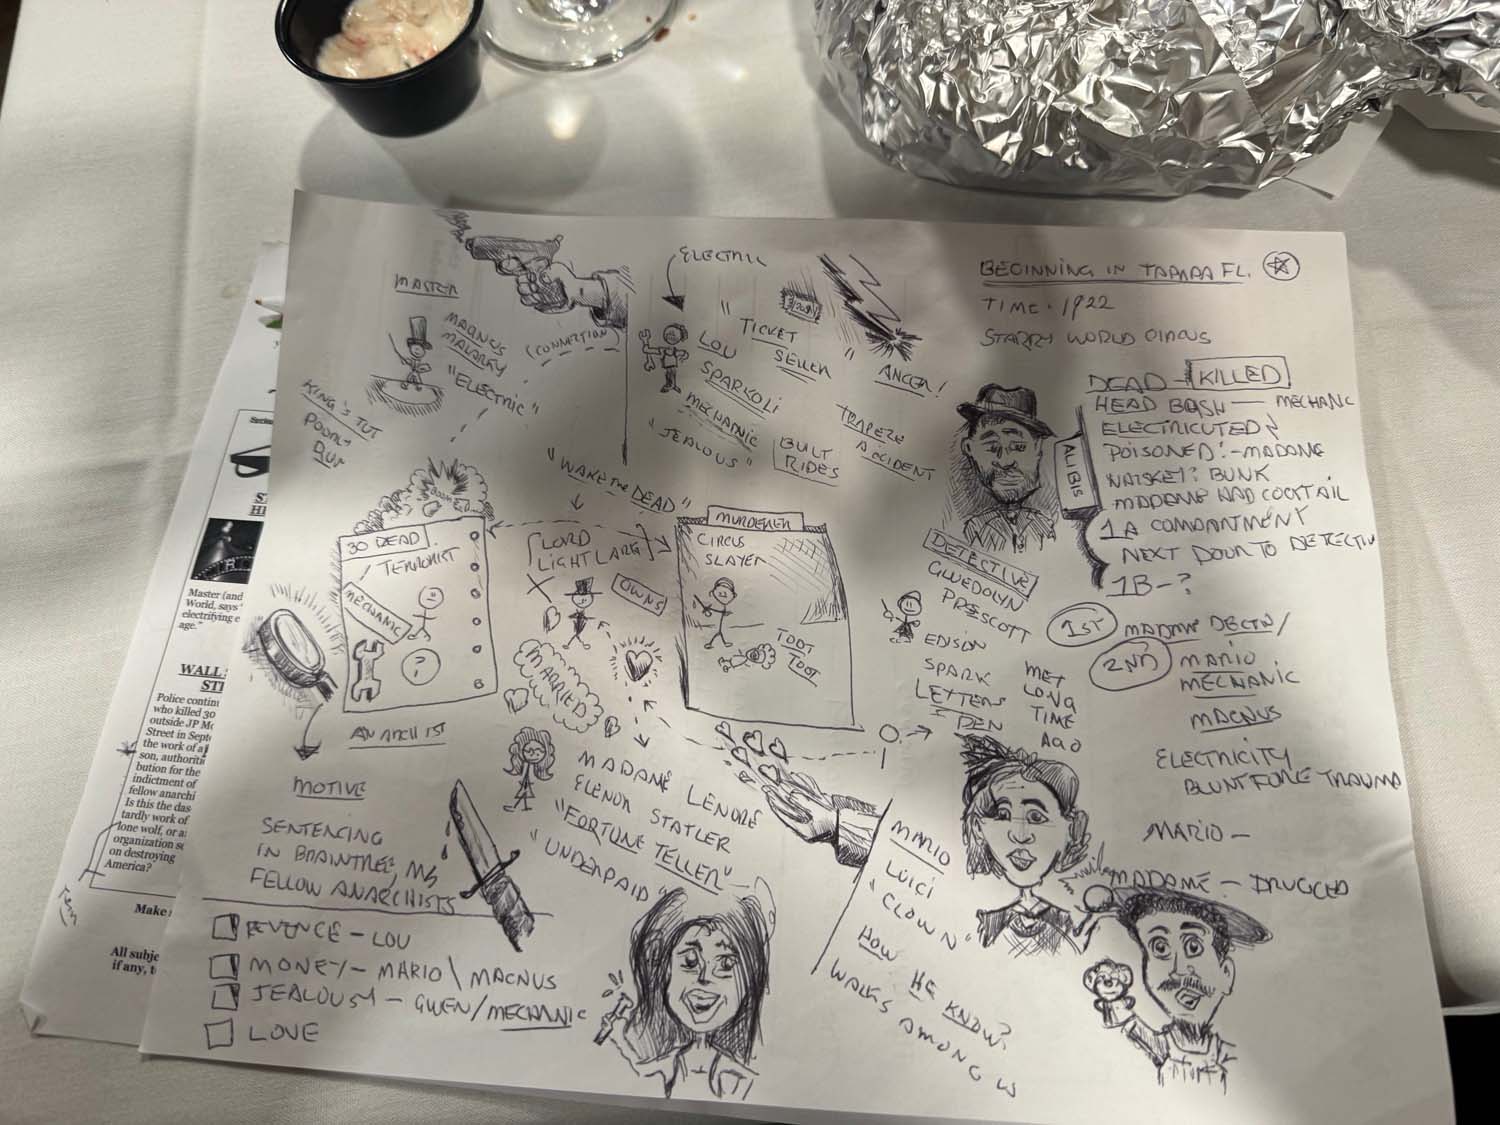 MASTER
MAGNUS
MALARKY
"ELECTRIC"
(CONNECTION)
KING'S TUT
POORLY
RUN
ELECTRIC
LOU
SPARKOLI
MECHANIC
"JEALOUS"
"TICKET
SELLER"
ANGER!
BUILT
RIDES
TRAPEZE
ACCIDENT
BEGINNING IN TAMPA FL.
TIME. 1922
STARRY WORLD CIRCUS
DEAD - KILLED
HEAD BASH - MECHANIC
ELECTRICUTED?
POISONED? - MADAME
BUNK
MADAME HAD COCKTAIL
1A COMPARTMENT
NEXT DOOR TO DETECTIV
1B - ?
ALIBIS
1ST
MADAME
2ND
MARIO
MECHANIC
MAGNUS
ELECTRICITY
BLUNT FORCE TRAUMA
MARIO -
MADAME - DRUGGED
"WAKE THE DEAD"
BOOM
30 DEAD
TERRORIST
MECHANIC
?
ANARCHIST
LORD
LIGHTLARG
OWNS
MARRIED
MURDERER
CIRCUS
SLAYER
TOOT
TOOT
DETECTIVE
GWEDOLYN
PRESCOTT
EDISON
SPARK
LETTERS
MET
LONG
TIME
AGO
MOTIVE
SENTENCING
IN BRAINTREE, MS
FELLOW ANARCHISTS
MADAME LENORE
ELENOR STATLER
"FORTUNE TELLER"
"UNDERPAID"
MARIO
LUIGI
"CLOWN"
HOW HE KNOW?
WALKS AMONG US
REVENGE - LOU
MONEY - MARIO \ MAGNUS
JEALOUSY - GWEN / MECHANIC
LOVE
Master (and
World, says
electrifying e
age."
WALL S
STR
Police contin
who killed 30
outside JP Mo
Street in Sept
the work of a
son, authoriti
bution for the
indictment of
fellow anarchi
Is this the das
tardly work of
lone wolf, or a
organization se
on destroying
America?
Make
All subje
if any, t